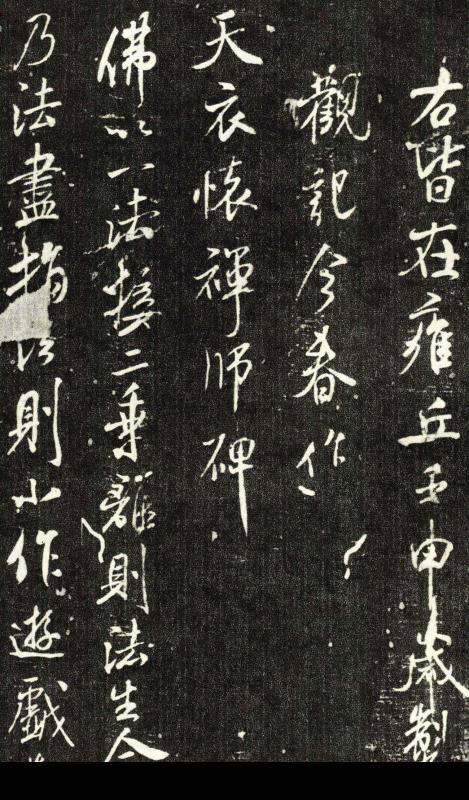 右皆在雍丘壬申歲製
觀記今春作
天衣懷禪師碑
佛以一法接二乘離則法生合
乃法盡指以則小作遊戲